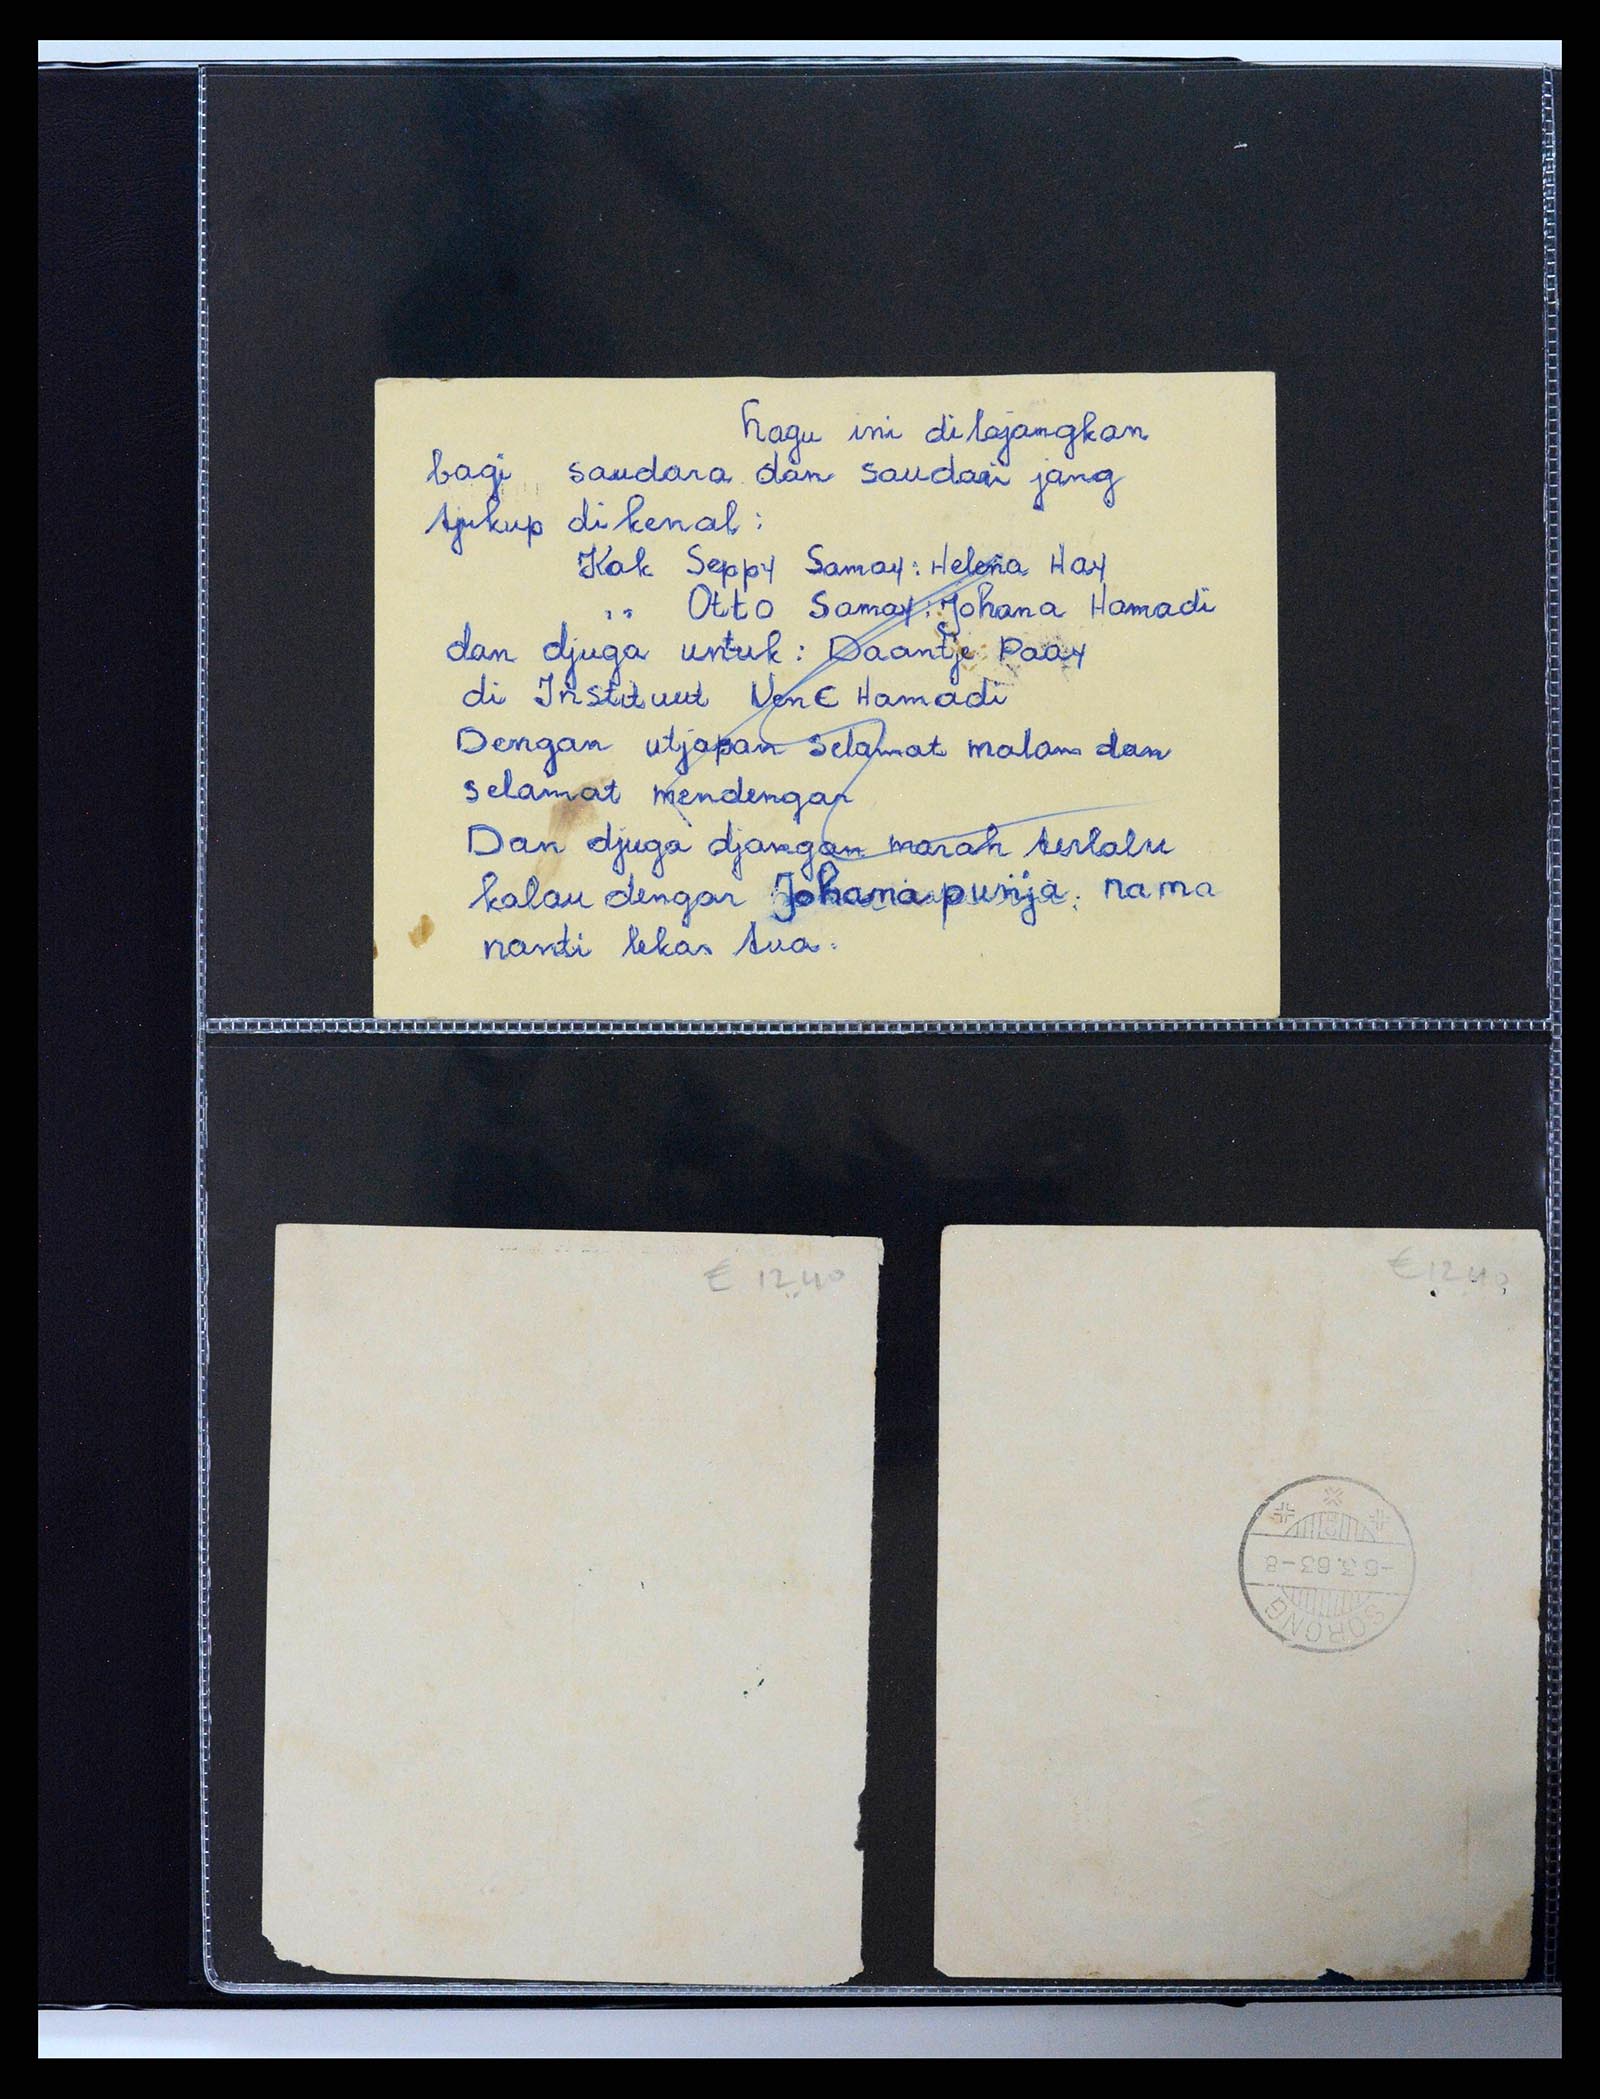 Lagu ini dilajangkan
bagi saudara dan saudari jang
tjukup dikenal:
Kak Seppy Samay: Helena Hay
" Otto Samay: Johana Hamadi
dan djuga untuk: Daantje Paay
di Instituut Hamadi
Dengan utjapan selamat malam dan
selamat mendengar
Dan djuga djangan marah terlalu
kalau dengar Johana punja nama
nanti lekas tua.
€ 12,40
€ 12,40
-6.3.63-8
SORONG